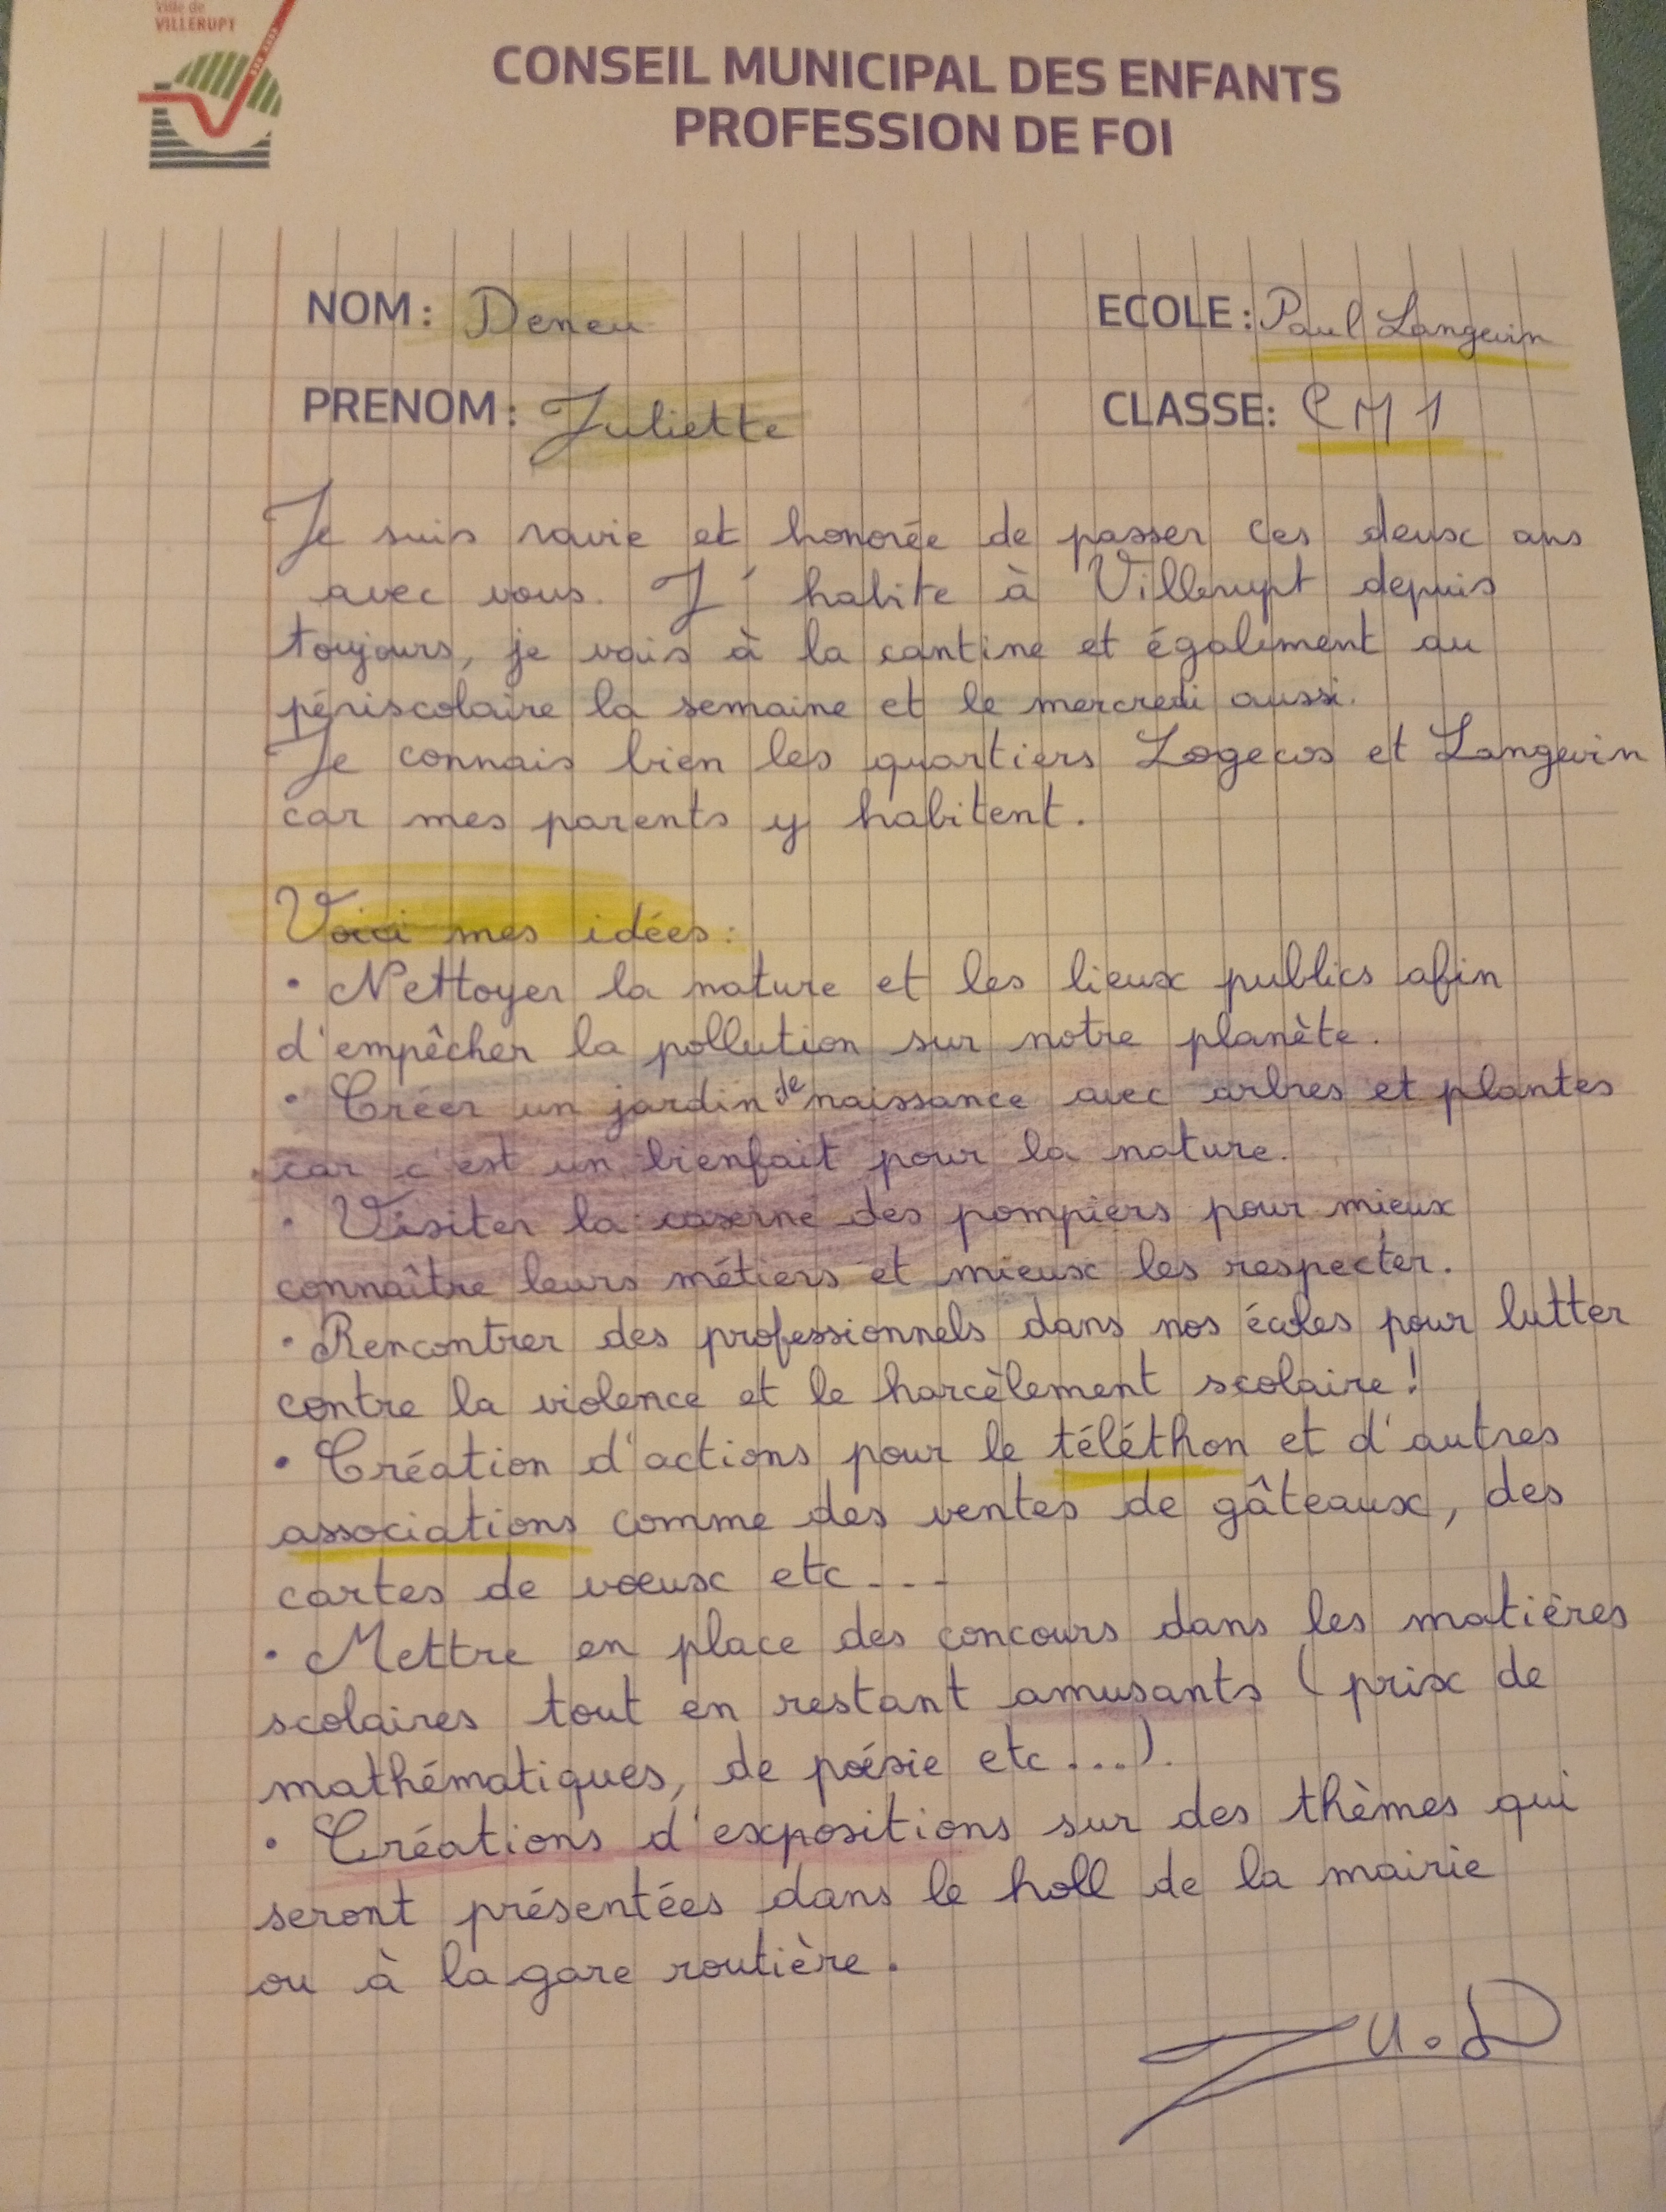 Ville de
VILLERUPT
CONSEIL MUNICIPAL DES ENFANTS
PROFESSION DE FOI
NOM: Deneu
ECOLE: Paul Langevin
PRENOM: Juliette
CLASSE: CM1
Je suis ravie et honorée de passer ces deux ans
avec vous. J'habite à Villerupt depuis
toujours, je vais à la cantine et également au
périscolaire la semaine et le mercredi aussi.
Je connais bien les quartiers Logecos et Langevin
car mes parents y habitent.
Voici mes idées:
• Nettoyer la nature et les lieux publics afin
d'empêcher la pollution sur notre planète.
• Créer un jardin de naissance avec arbres et plantes
car c'est un bienfait pour la nature.
• Visiter la caserne des pompiers pour mieux
connaître leurs métiers et mieux les respecter.
• Rencontrer des professionnels dans nos écoles pour lutter
contre la violence et le harcèlement scolaire!
• Création d'actions pour le téléthon et d'autres
associations comme des ventes de gâteaux, des
cartes de vœux etc...
• Mettre en place des concours dans les matières
scolaires tout en restant amusants (prix de
mathématiques, de poésie etc...).
• Créations d'expositions sur des thèmes qui
seront présentées dans le holl de la mairie
ou à la gare routière.
Ju.D